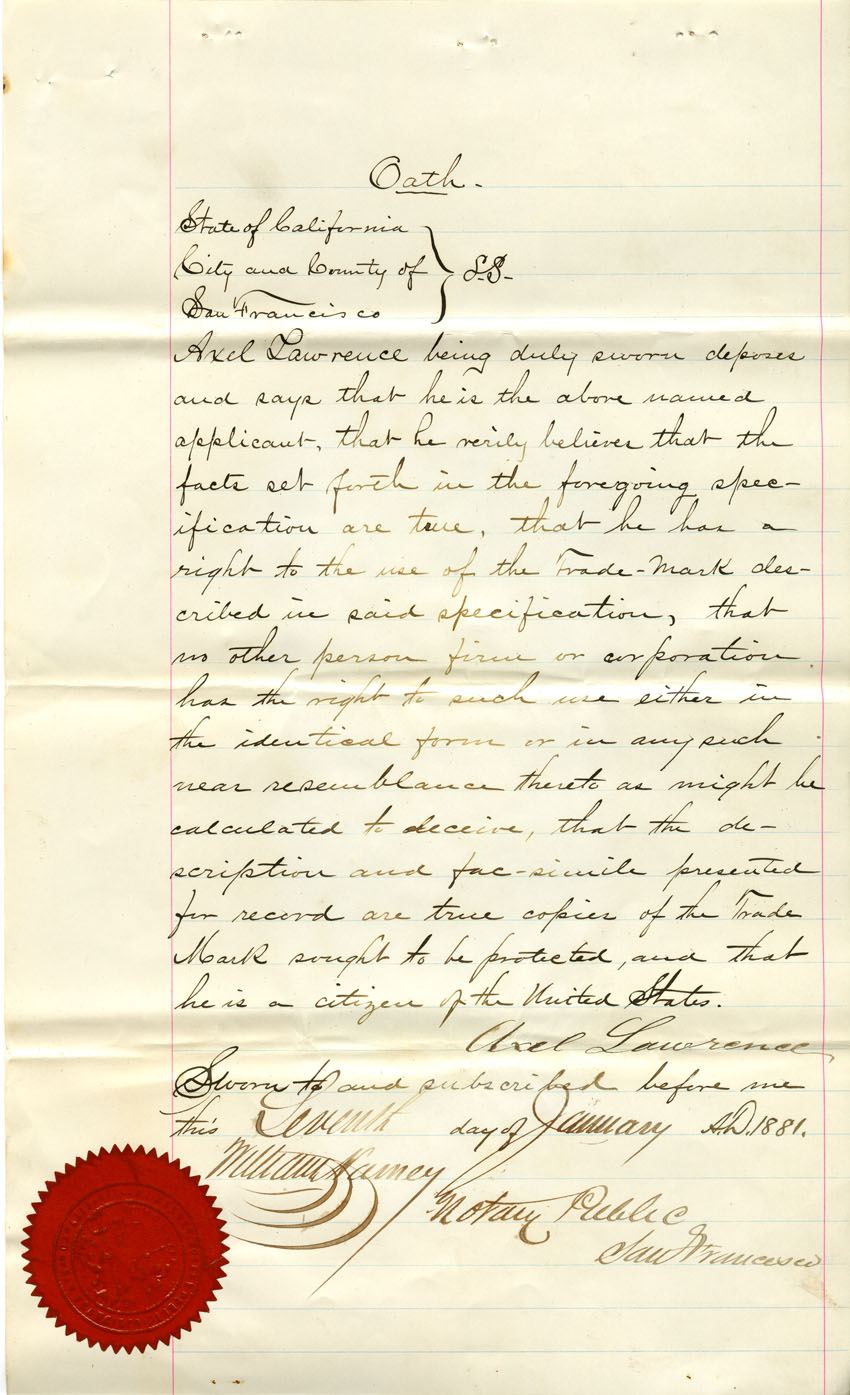 Oath.
State of California
City and County of } S.S.
San Francisco
Axel Lawrence being duly sworn deposes
and says that he is the above named
applicant, that he verily believes that the
facts set forth in the foregoing spec-
ification are true, that he has a
right to the use of the Trade-Mark des-
cribed in said specification, that
no other person firm or corporation
has the right to such use either in
the identical form or in any such
near resemblance thereto as might be
calculated to deceive, that the de-
scription and fac-simile presented
for record are true copies of the Trade
Mark sought to be protected, and that
he is a citizen of the United States.
Axel Lawrence
Sworn to and subscribed before me
this Seventh day of January A.D. 1881.
William Harney
Notary Public
San Francisco